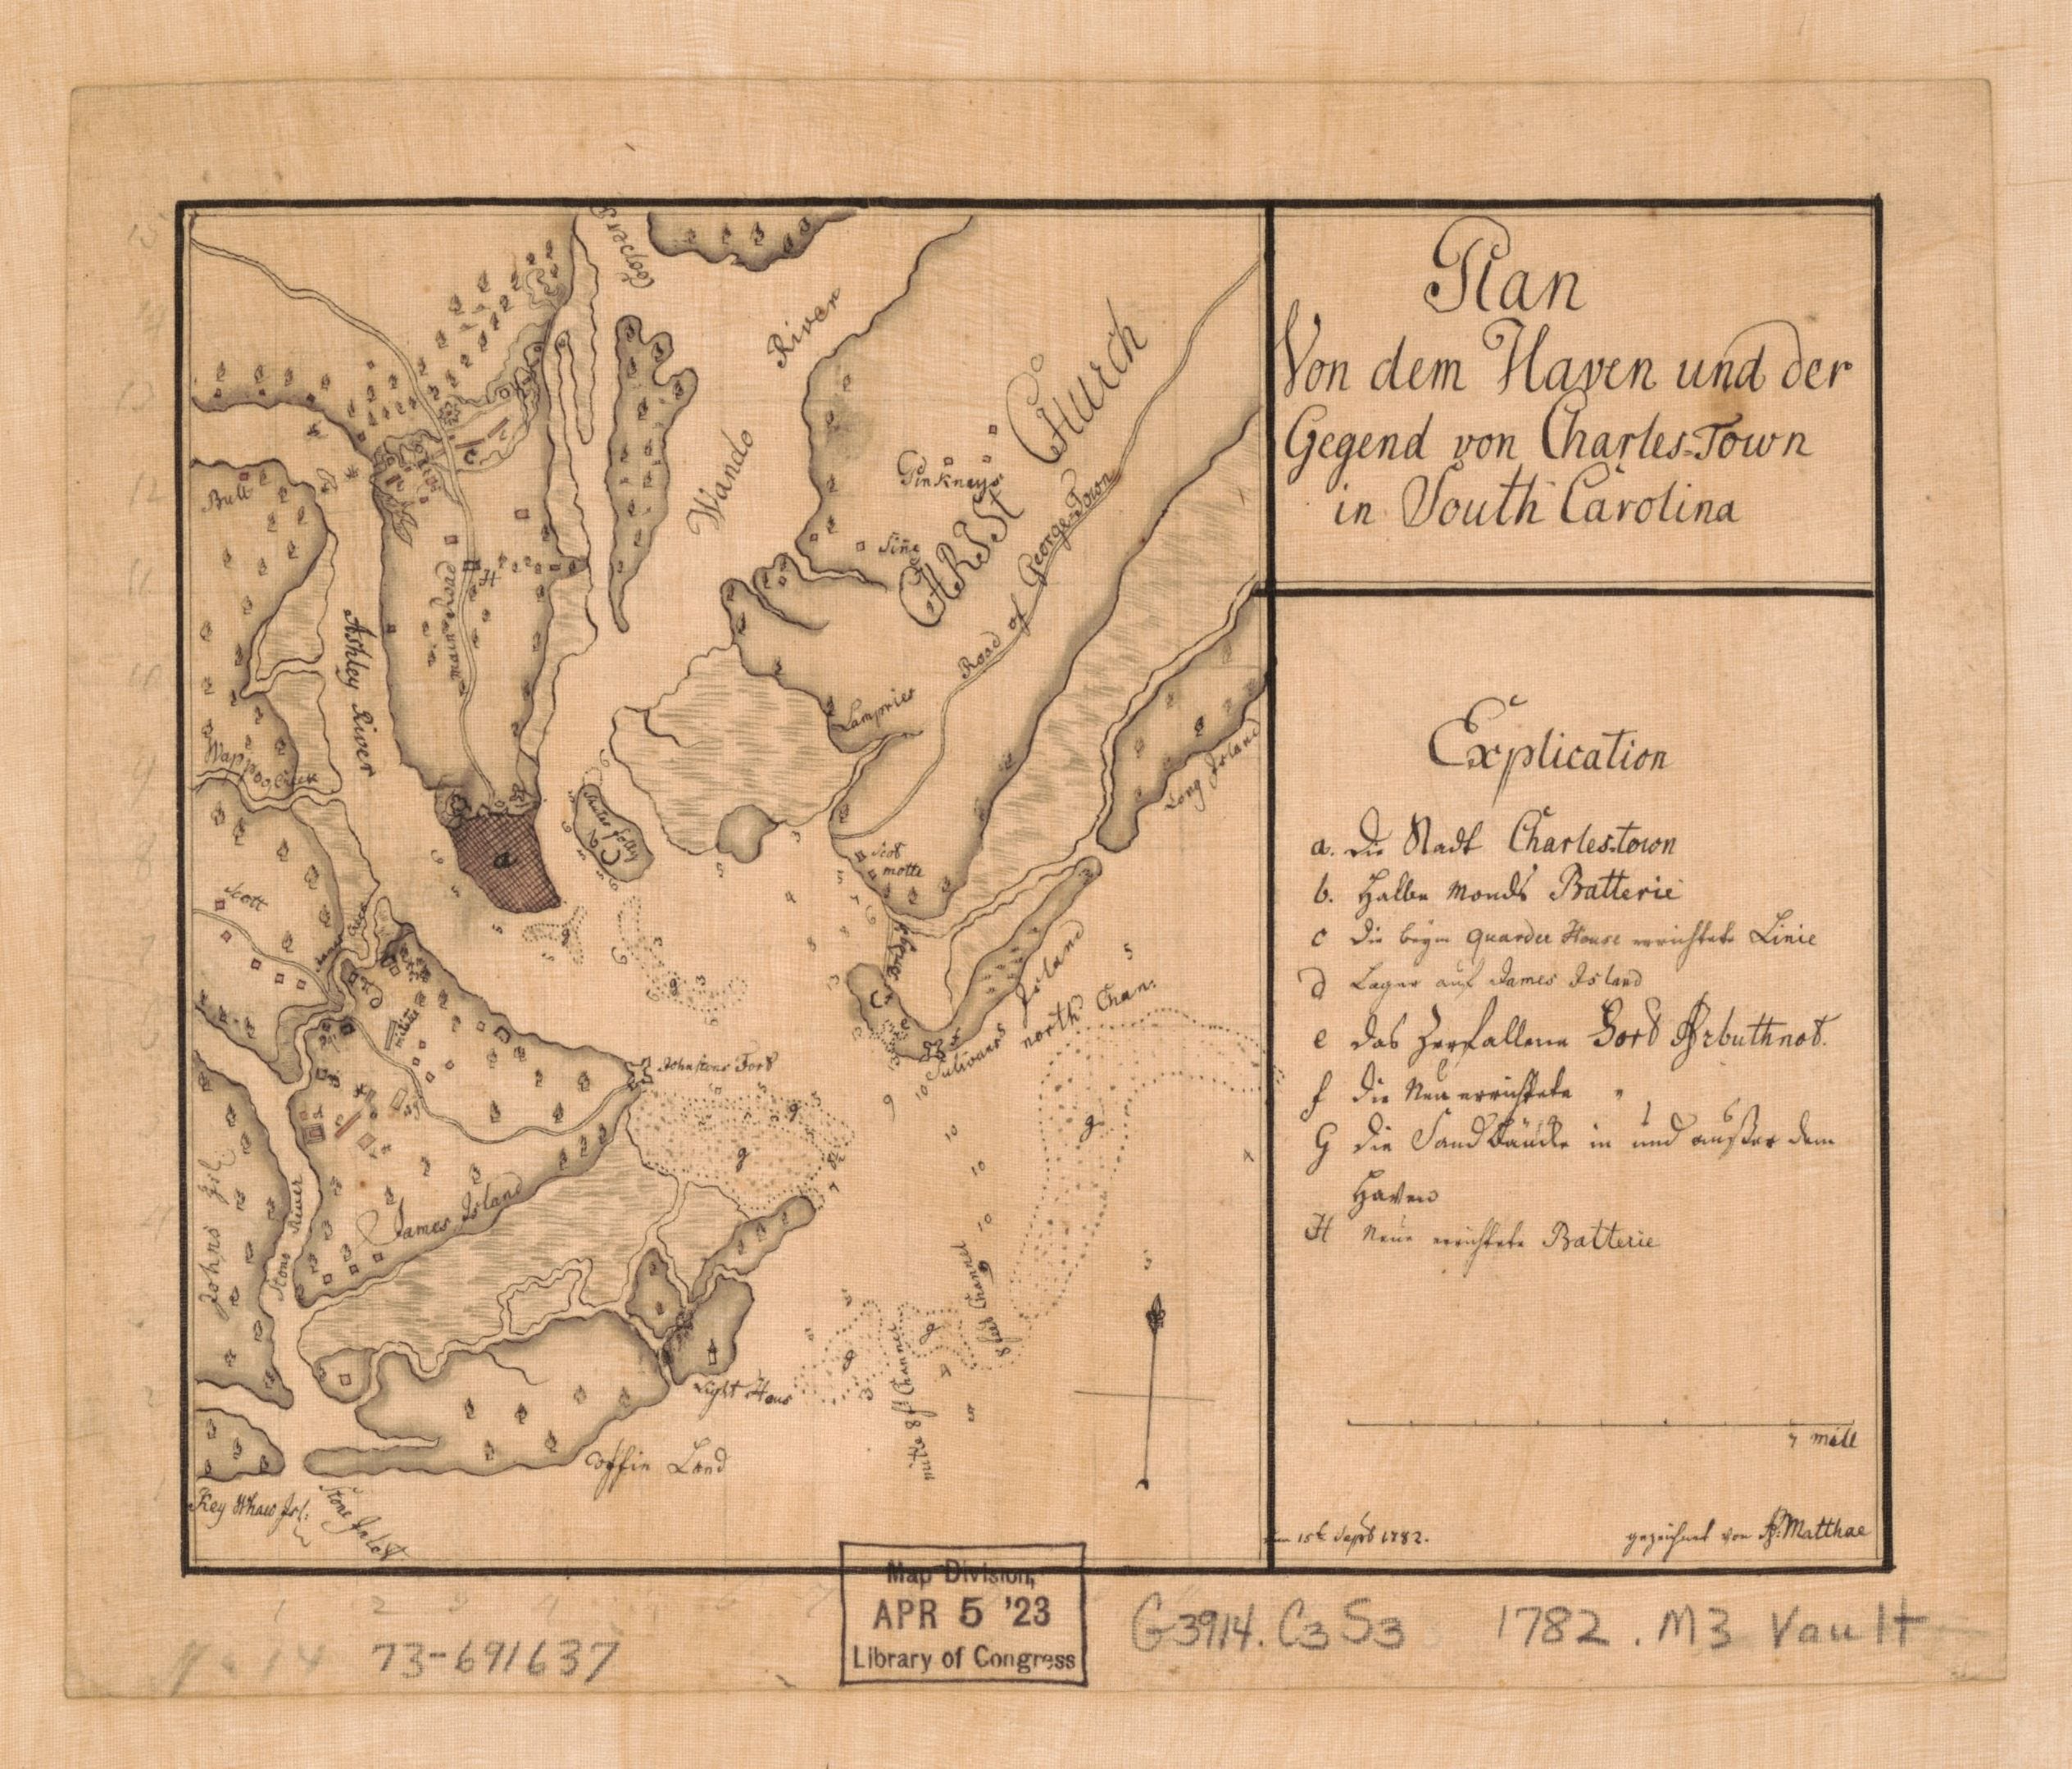 Plan
Von dem Haven und der
Gegend von Charles-Town
in South Carolina
Explication
a. Die Stadt Charlestown
b. Halbe Monds Batterie
c Die beym Quarder House errichtete Linie
d Lager auf James Island
e das Zerfallene Fort Arbuthnot.
f die Neu errichtete "
G die Sandbäncke in und außer dem
Haven
H Neue errichtete Batterie
7 mill
15t Sept 1782.
gezeichnet von A: Matthae
Cooper
River
Wando
CHRIST CHURCH
Pinkneys
Road of George-Town
Bull
Ashley River
H
Lampries
Long Island
Wappoo Creek
Shutes folly
a
Scott
Scot
motte
Bridge
C
Sulivans Island
north Chan:
Johnstons Fort
militz
g
g
g
g
James Island
Johns Isl.
Stono River
8 feet Channel
Light Hous
Coffin Land
Key Whaw Isl:
Stono Inlet
Map Division,
APR 5 '23
Library of Congress
73-691637
G3914.C3S3 1782.M3 Vault